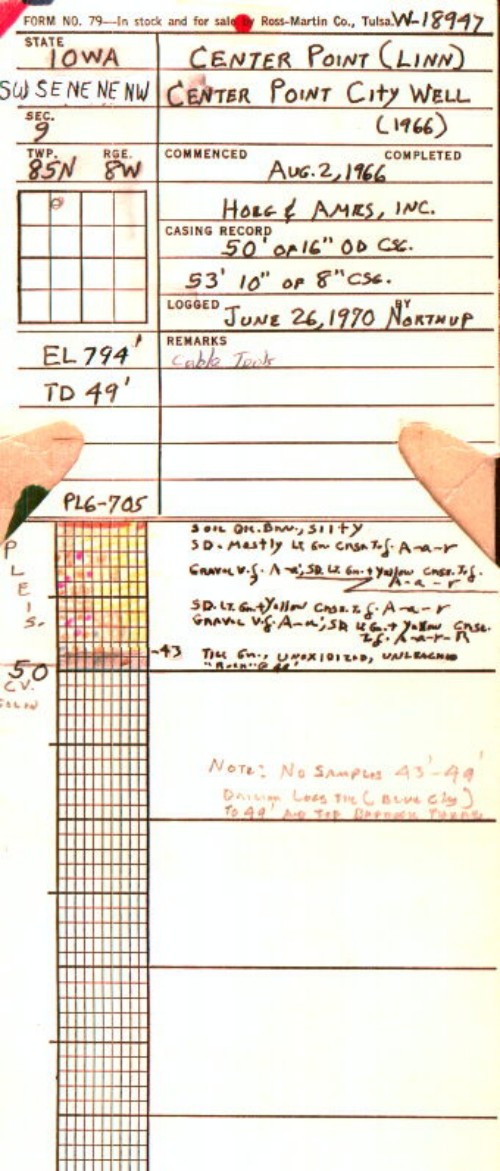 FORM NO. 79—In stock and for sale by Ross-Martin Co., Tulsa. W-18947
STATE
IOWA
CENTER POINT (LINN)
SW SE NE NE NW
CENTER POINT CITY WELL
SEC.
9
(1966)
TWP. RGE.
85N 8W
COMMENCED COMPLETED
AUG. 2, 1966
HOEG & AMES, INC.
CASING RECORD
50' OF 16" OD CSG.
53' 10" OF 8" CSG.
LOGGED BY
JUNE 26, 1970 NORTHUP
EL 794'
REMARKS
Cable Tools
TD 49'
PL6-705
PLEIS.
SOIL DK. BRN., SILTY
SD. MOSTLY LT GN CRSE To f. A-a-r
GRAVEL V.f. A-a; SD. LT. GN. + YELLOW CRSE. To f.
A-a-r
SD. LT. GN. + YELLOW CRSE. To f. A-a-r
GRAVEL V.f. A-a; SD. LT GN. + YELLOW CRSE.
To f. A-a-r-R
-43 TILL GN., UNOXIDIZED, UNLEACHED
"ROCK" @ 49'
50
NOTE: NO SAMPLES 43'-49'
DRILLER LOGS TILL (BLUE CLAY)
TO 49' AND TOP BEDROCK THERE